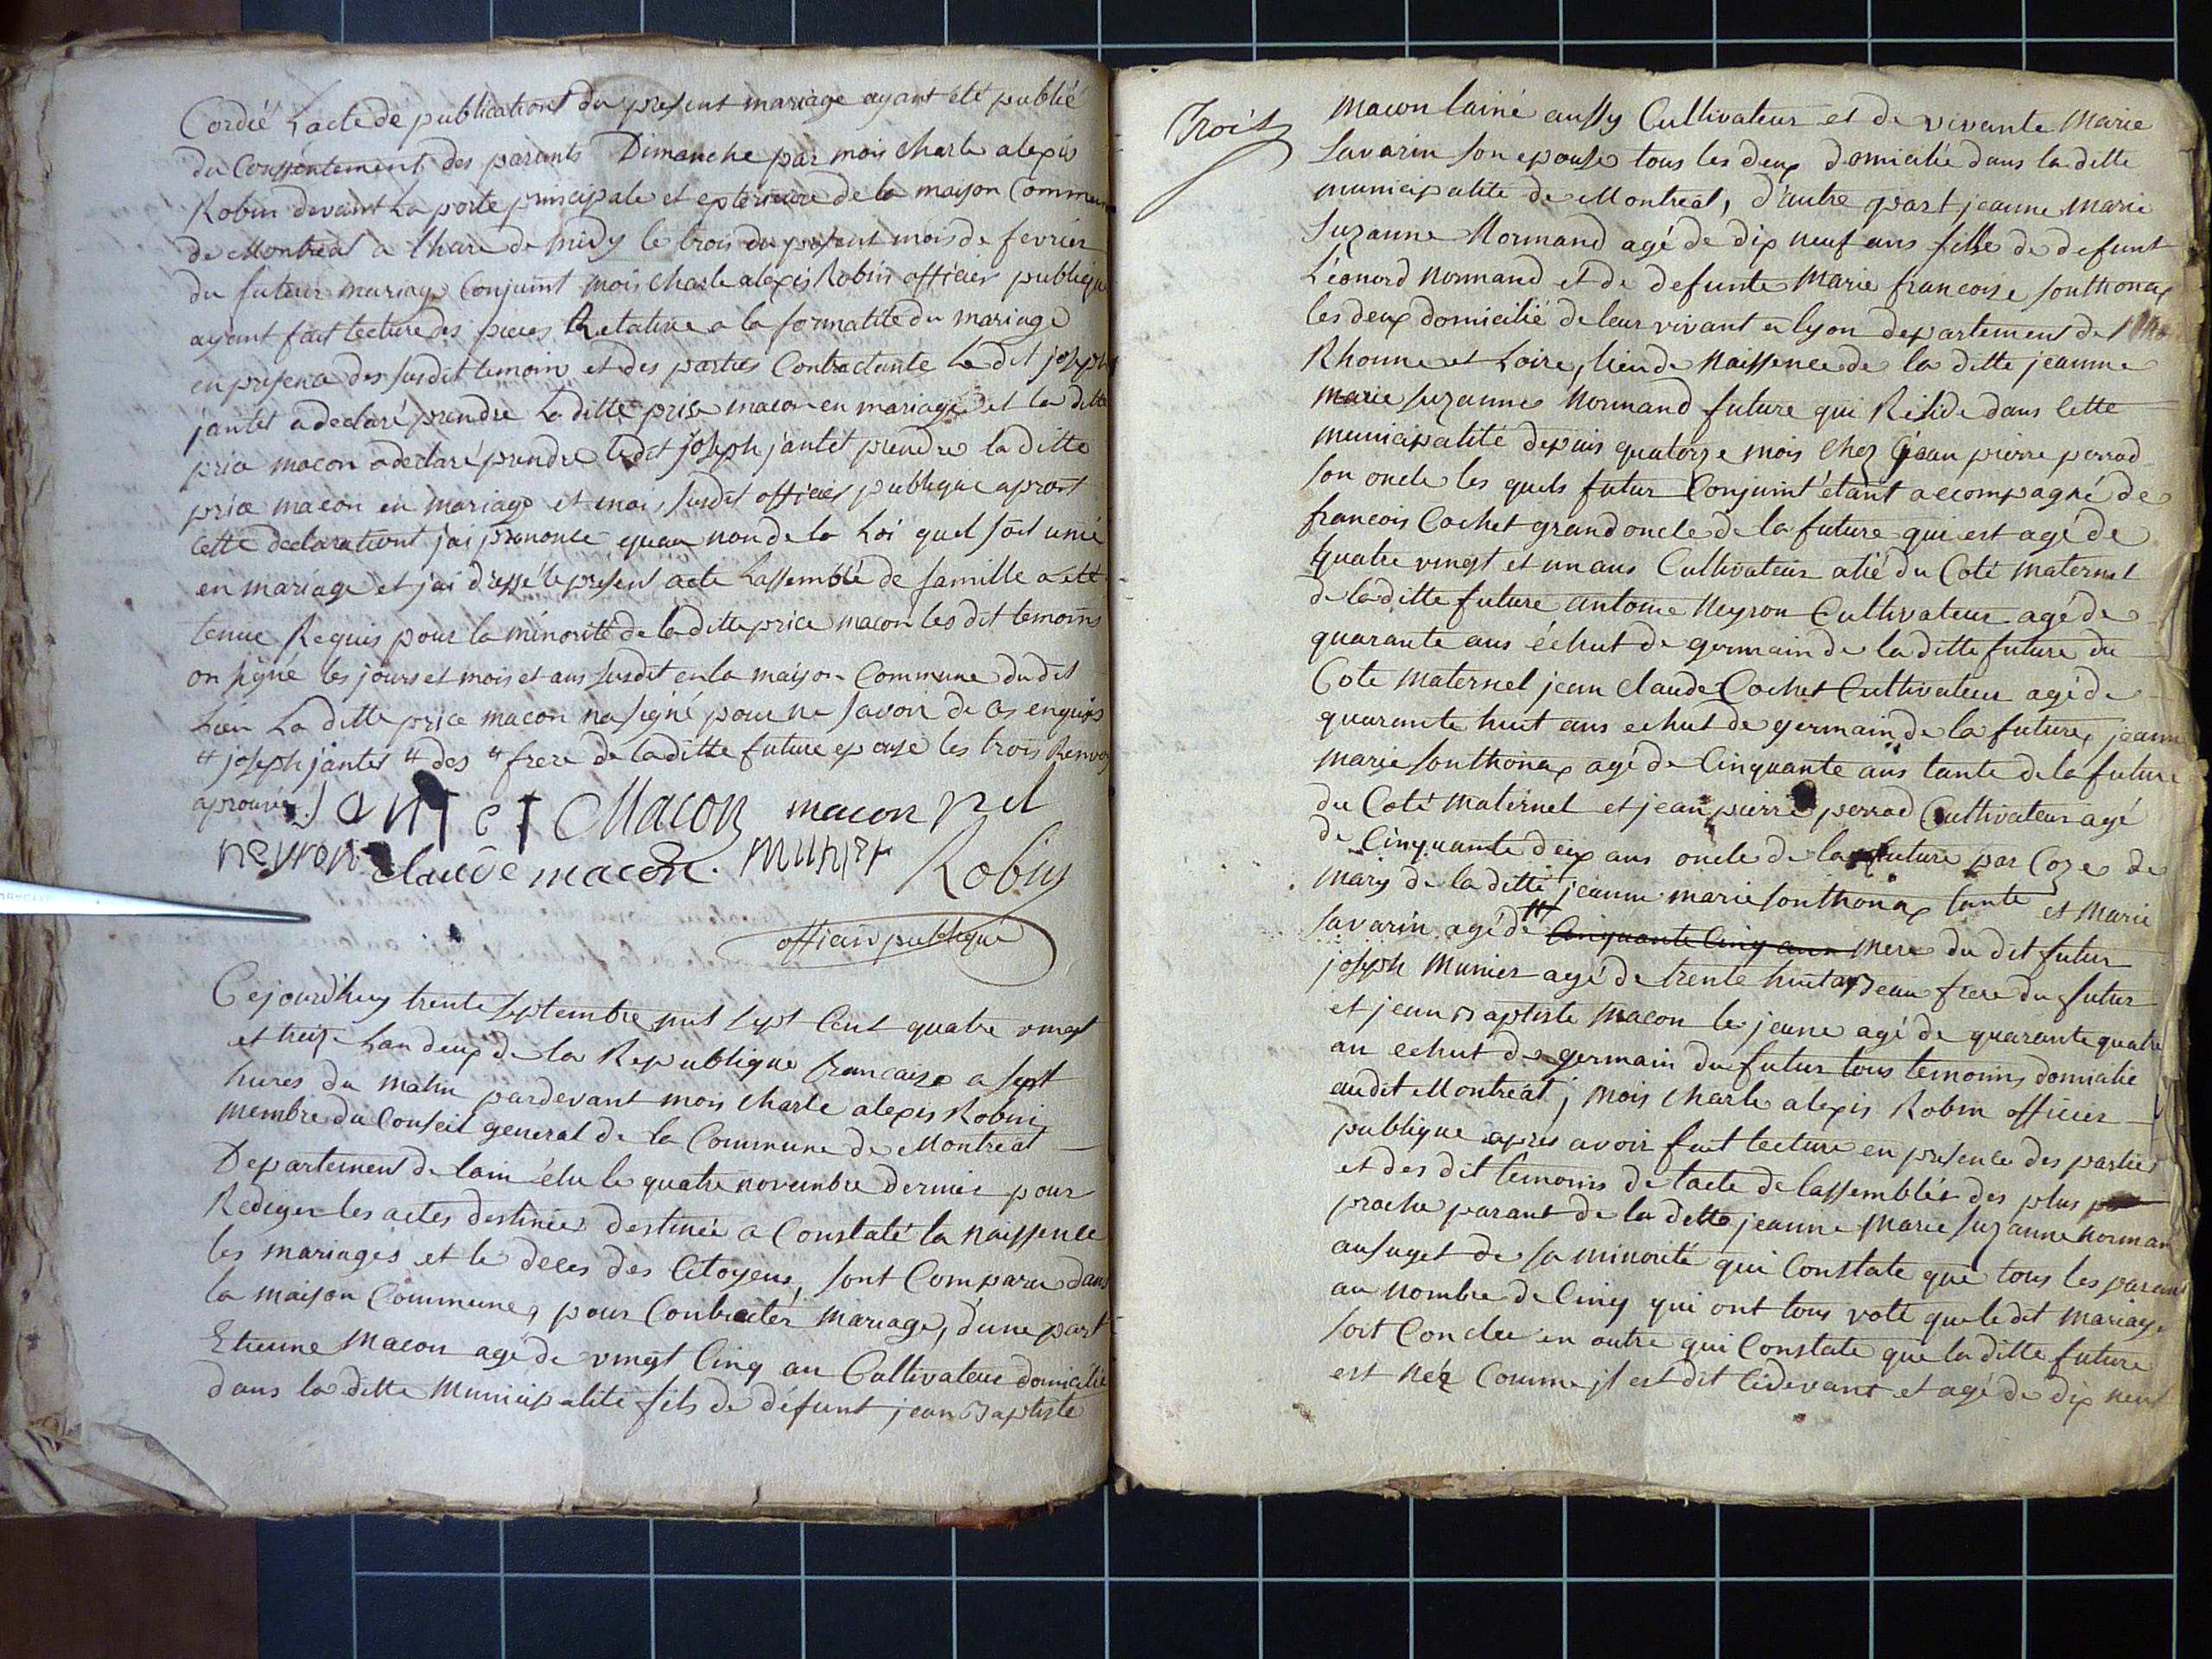 Cordié Lacte de publications du present mariage ayant été publié
du Consentement des parents Dimanche par mois charle alexis
Robin devant La porte principale et exterieure de la maison Commune
de Montreal a lhure de midy le trois du present mois de fevrier
du futeur mariage Conjoint mois charle alexis Robin officier publique
ayant fait lecture des pieces Relative a la formalité du mariage
en presence des susdit temoins et des parties Contractante Le dit joseph
jantet a declaré prendre la ditte price macon en mariage et la ditte
price macon a declaré prendre ledit joseph jantet prendre la ditte
price macon en mariage et moi, susdit officier publique aprest
cette declarationt jai prononce quau non de la Loi quel soit unie
en mariage et jai dressé le present acte Lassemblé de famille a eté
tenue Requis pour la minorité de la ditte price macon les dit temoins
on signé les jours et mois et ans susdit en la maison Commune du dit
Lieu La ditte price macon na signé pour ne savoir de ce enquis
" joseph jantet " des " frere de la ditte future epouse les trois Renvoy
aprouvé. Jantet Macon macon pil
neyron claude macon. munier Robin
officier publique
Cejourdhuy trente septembre mil sept Cent quatre vingt
et treiz Lan deux de la Republique francaise a sept
hures du matin pardevant mois charle alexis Robin
membre du Conseil general de la Commune de Montreal
Departement de lain élu le quatre novembre dernier pour
Rediger les actes destinée destinée a Constaté la naissence
les mariages et le deces des Citoyens, sont Comparu dans
la maison Commune, pour Contracter mariage, d'une part
Etienne Macon agé de vingt Cinq an Cultivateur domicilié
dans la ditte Municipalité fils de défunt jean Baptiste
Trois
Macon lainé aussy Cultivateur et de vivante Marie
Savarin son epouse tous les deux domicilié dans la ditte
municipalité de Montreal, d'autre part jeanne marie
Suzanne Normand agé de dix neuf ans fille de defunt
Léonord Normand et de defunte Marie francoise Sonthonax
les deux domicilié de leur vivant a lyon departement de
Rhonne et Loire, lieu de Naissence de la ditte jeanne
Marie Suzanne Normand future qui Réside dans Cette
municipalité depuis quatorze mois Chez jean pierre perrod
son oncle les quels futur Conjoint étant accompagné de
francois Cochet grand oncle de la future qui est agé de
quatre vingt et un ans Cultivateur alié du Coté maternel
de la ditte future antoine Neyron Cultivateur agé de
quarante ans échut de germain de la ditte future du
Coté Maternel jean claude Cochet Cultivateur agé de
quarante huit ans echut de germain de la future, jeanne
marie Sonthonax agé de Cinquante ans tante de la future
du Coté maternel et jean pierre perrod Cultivateur agé
de Cinquante deux ans oncle de la future par Coze de
mary de la ditte jeanne marie Sonthonax tante et Marie
Savarin agé de Cinquante Cinq ans mere du dit futur
joseph Munier agé de trente huit an Beau frere du futur
et jean Baptiste Macon le jeune agé de quarante quatre
an echut de germain du futur tous temoins domicilié
audit Montreal; mois charle alexis Robin officier
publique apres avoir fait lecture en presence des parties
et des dit temoins de lacte de lassemblée des plus
proche parant de la ditte jeanne Marie Suzanne Norman
ausujet de sa minorité qui Constate que tous les parans
au Nombre de Cinq qui ont tous voté que le dit Mariage
soit Conclue en outre qui Constate que la ditte future
est néz Comme jl est dit Cidevant et agé de dix neuf